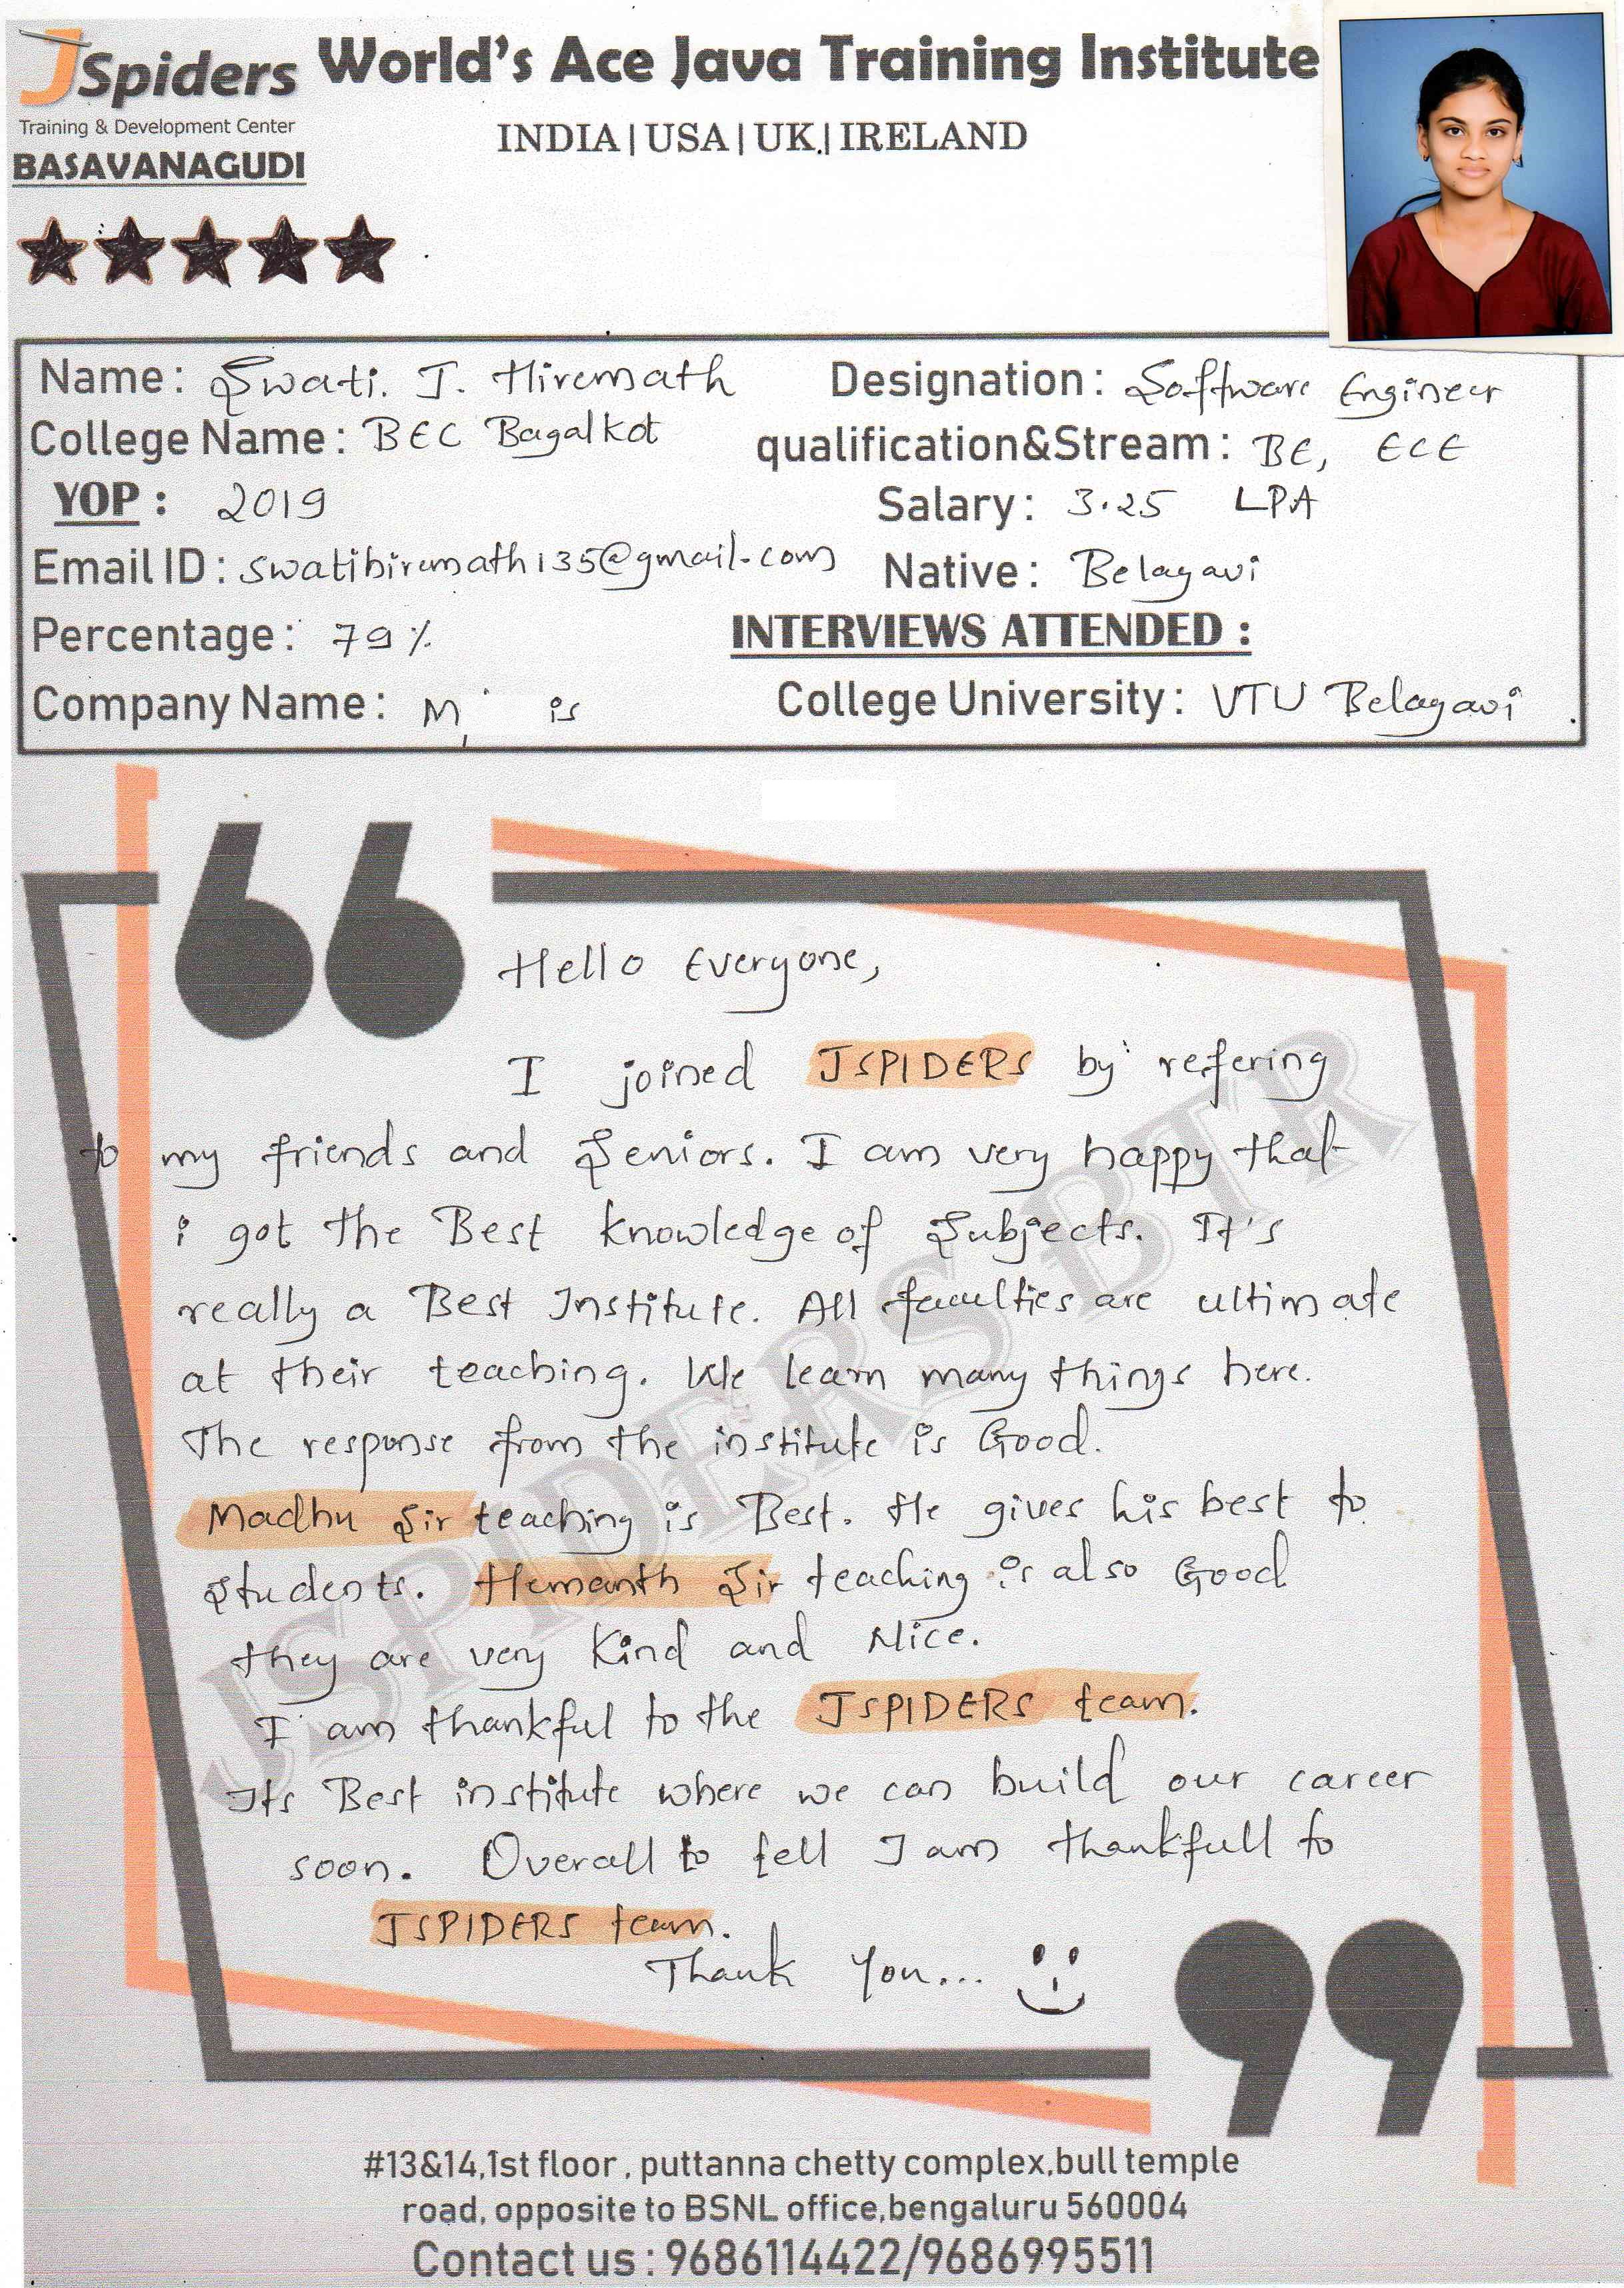 JSpiders World's Ace Java Training Institute
Training & Development Center
INDIA | USA | UK | IRELAND
BASAVANAGUDI
Name: Swati. J. Hiremath Designation: Software Engineer
College Name: BEC Bagalkot qualification&Stream: BE, ECE
YOP: 2019 Salary: 3.25 LPA
Email ID: swatihiremath135@gmail.com Native: Belagavi
Percentage: 79% INTERVIEWS ATTENDED:
Company Name: College University: VTU Belagavi
Hello Everyone,
I joined JSPIDERS by refering
to my friends and Seniors. I am very happy that
i got the Best knowledge of Subjects. It's
really a Best Institute. All faculties are ultimate
at their teaching. We learn many things here.
The response from the institute is Good.
Madhu Sir teaching is Best. He gives his best to
students. Hemanth Sir teaching is also Good
they are very Kind and Nice.
I am thankful to the JSPIDERS team.
Its Best institute where we can build our career
soon. Overall to tell I am thankfull to
JSPIDERS team.
Thank You...
JSPIDERS BTR
#13&14,1st floor, puttanna chetty complex,bull temple
road, opposite to BSNL office,bengaluru 560004
Contact us : 9686114422/9686995511